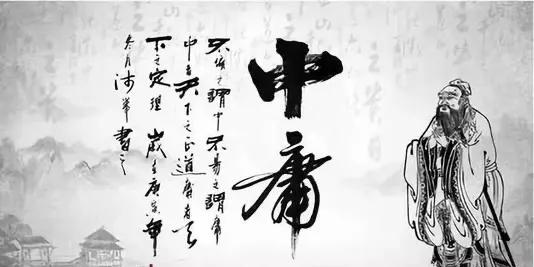 中庸
不偏之謂中不易之謂庸
中者天下之正道庸者天
下之定理 歲庚寅年
冬月書之